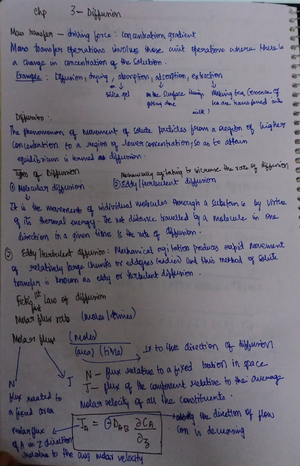 Chp 3- Diffusion
Mass transfer - driving force : concentration gradient
Mass transfer operations involves those unit operations where there is
a change in concentration of the solution.
Example : Diffusion, drying, absorption, adsorption, extraction
silica gel
on the surface
making tea (essence of
tea are transferred into
milk)
Diffusion:
The phenomenon of movement of solute particles from a region of higher
concentration to a region of lower concentration, so as to obtain
equilibrium is known as diffusion.
Types of Diffusion
Mechanically agitating to increase the rate of diffusion
① Molecular diffusion
② Eddy/turbulent diffusion
It is the movements of individual molecules through a substance by virtue
of its thermal energy. The net distance travelled by a molecule in one
direction in a given time is the rate of diffusion.
② Eddy/turbulent diffusion: Mechanical agitation produces rapid movement
of relatively large chunks or eddies and this method of solute
transfer is known as eddy or turbulent diffusion.
Fick's 1st Law of diffusion
Molar flux rate (moles/times)
Molar flux
(moles)
(area) (time)
⊥ to the direction of diffusion
N - flux relative to a fixed location in space
J - flux of the component relative to the average
molar velocity of all the constituents.
N
J
flux related to
a fixed area
molar flux
of A in Z direction
relative to the avg molar velocity
J_A = - D_AB ∂C_A / ∂z
the direction of flow
con is decreasing